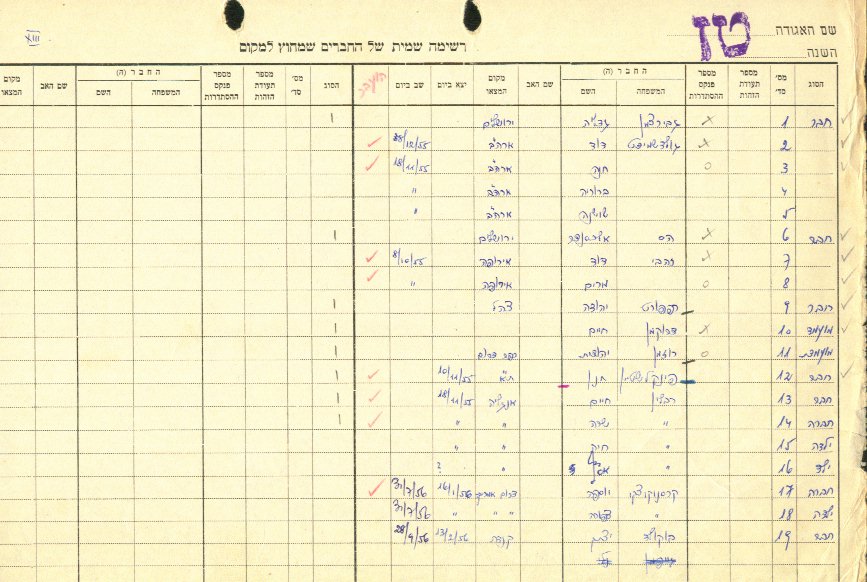 שם האגודה טז
השנה
XIII
רשימה שמית של החברים שמחוץ למקום
הסוג מס׳ סד׳ מספר תעודת הזהות מספר פנקס ההסתדרות החבר (ה) המשפחה השם שם האב מקום המצאו יצא ביום שב ביום הסוג מס׳ סד׳ מספר תעודת הזהות מספר פנקס ההסתדרות החבר (ה) המשפחה השם שם האב מקום המצאו
חבר 1 x גדליה ירושלים 1
2 x דוד ארה״ב /12/55
3 o חנה ארה״ב 18/11/55
4 ברוריה ארה״ב "
5 שושנה ארה״ב "
חבר 6 x הס אלכסנדר ירושלים 1
7 x זהבי דוד אירופה 8/10/55
8 o מרים אירופה "
חבר 9 רפפורט יהודה צה״ל 1
מועמד 10 x דרוקמן חיים 1
מועמדת 11 o רוזמן יהודית כפר דרום 1
חבר 12 פינקלשטיין חנן ת״א 10/11/55 1
חבר 13 רבצין חיים אנגליה 18/11/55 1
חברה 14 " שרה " " 1
ילדה 15 " חיה " "
ילד 16 " " ?
חברה 17 קרסנוקוצקי יוספה דרום אפריקה 16/1/56 31/7/56
ילדה 18 " " " " 31/7/56
חבר 19 בוקולד יצחק קנדה 13/2/56 28/9/56